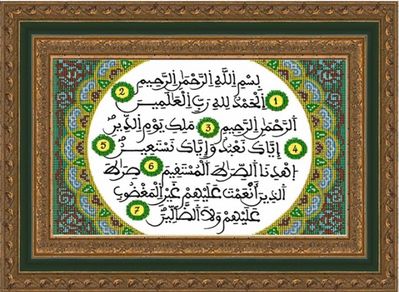 بسم الله الرحمن الرحيم 1
الحمد لله رب العالمين 2
الرحمن الرحيم 3 ملك يوم الدين
4 إياك نعبد وإياك نستعين 5
اهدنا الصراط المستقيم 6 صراط
الذين أنعمت عليهم غير المغضوب
عليهم ولا الضالين 7